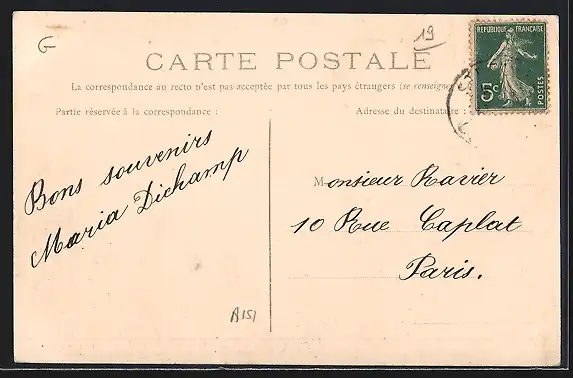 G
19
CARTE POSTALE
La correspondance au recto n'est pas acceptée par tous les pays étrangers (se renseigne
Partie réservée à la correspondance :
Adresse du destinataire :
RÉPUBLIQUE FRANÇAISE
5c
POSTES
Bons souvenirs
Maria Dichamp
Monsieur Ravier
10 Rue Caplat
Paris.
A151